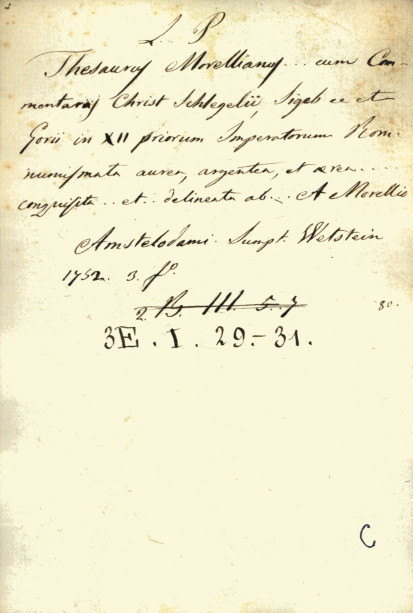 L. P.
Thesaurus Morellianus... cum Com-
mentariis Christ Schlegelii, Sigeb et
Gorii in XII priorum Imperatorum Rom.
numismata aurea, argentea, et aerea....
conquisita.. et. delineata ab.. A Morellio
Amstelodami. Sumpt. Wetstein
1752. 3. fº.
2. B. III. 5. 7
80.
3E. I. 29-31.
C